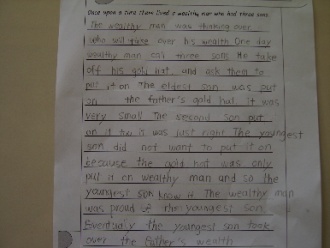 Once upon a time there lived a wealthy man who had three sons.
The wealthy man was thinking over
who will take over his wealth One day
wealthy man call three sons. He take
off his gold hat and ask them to
put it on The eldest son was put
on the father's gold hat. it was
very small The second son put
on it too it was just right The youngest
son did not want to put it on
because the gold hat was only
put it on wealthy man and so the
youngest son know it. The wealthy man
was proud of the youngest son.
Eventually the youngest son took
over the father's wealth